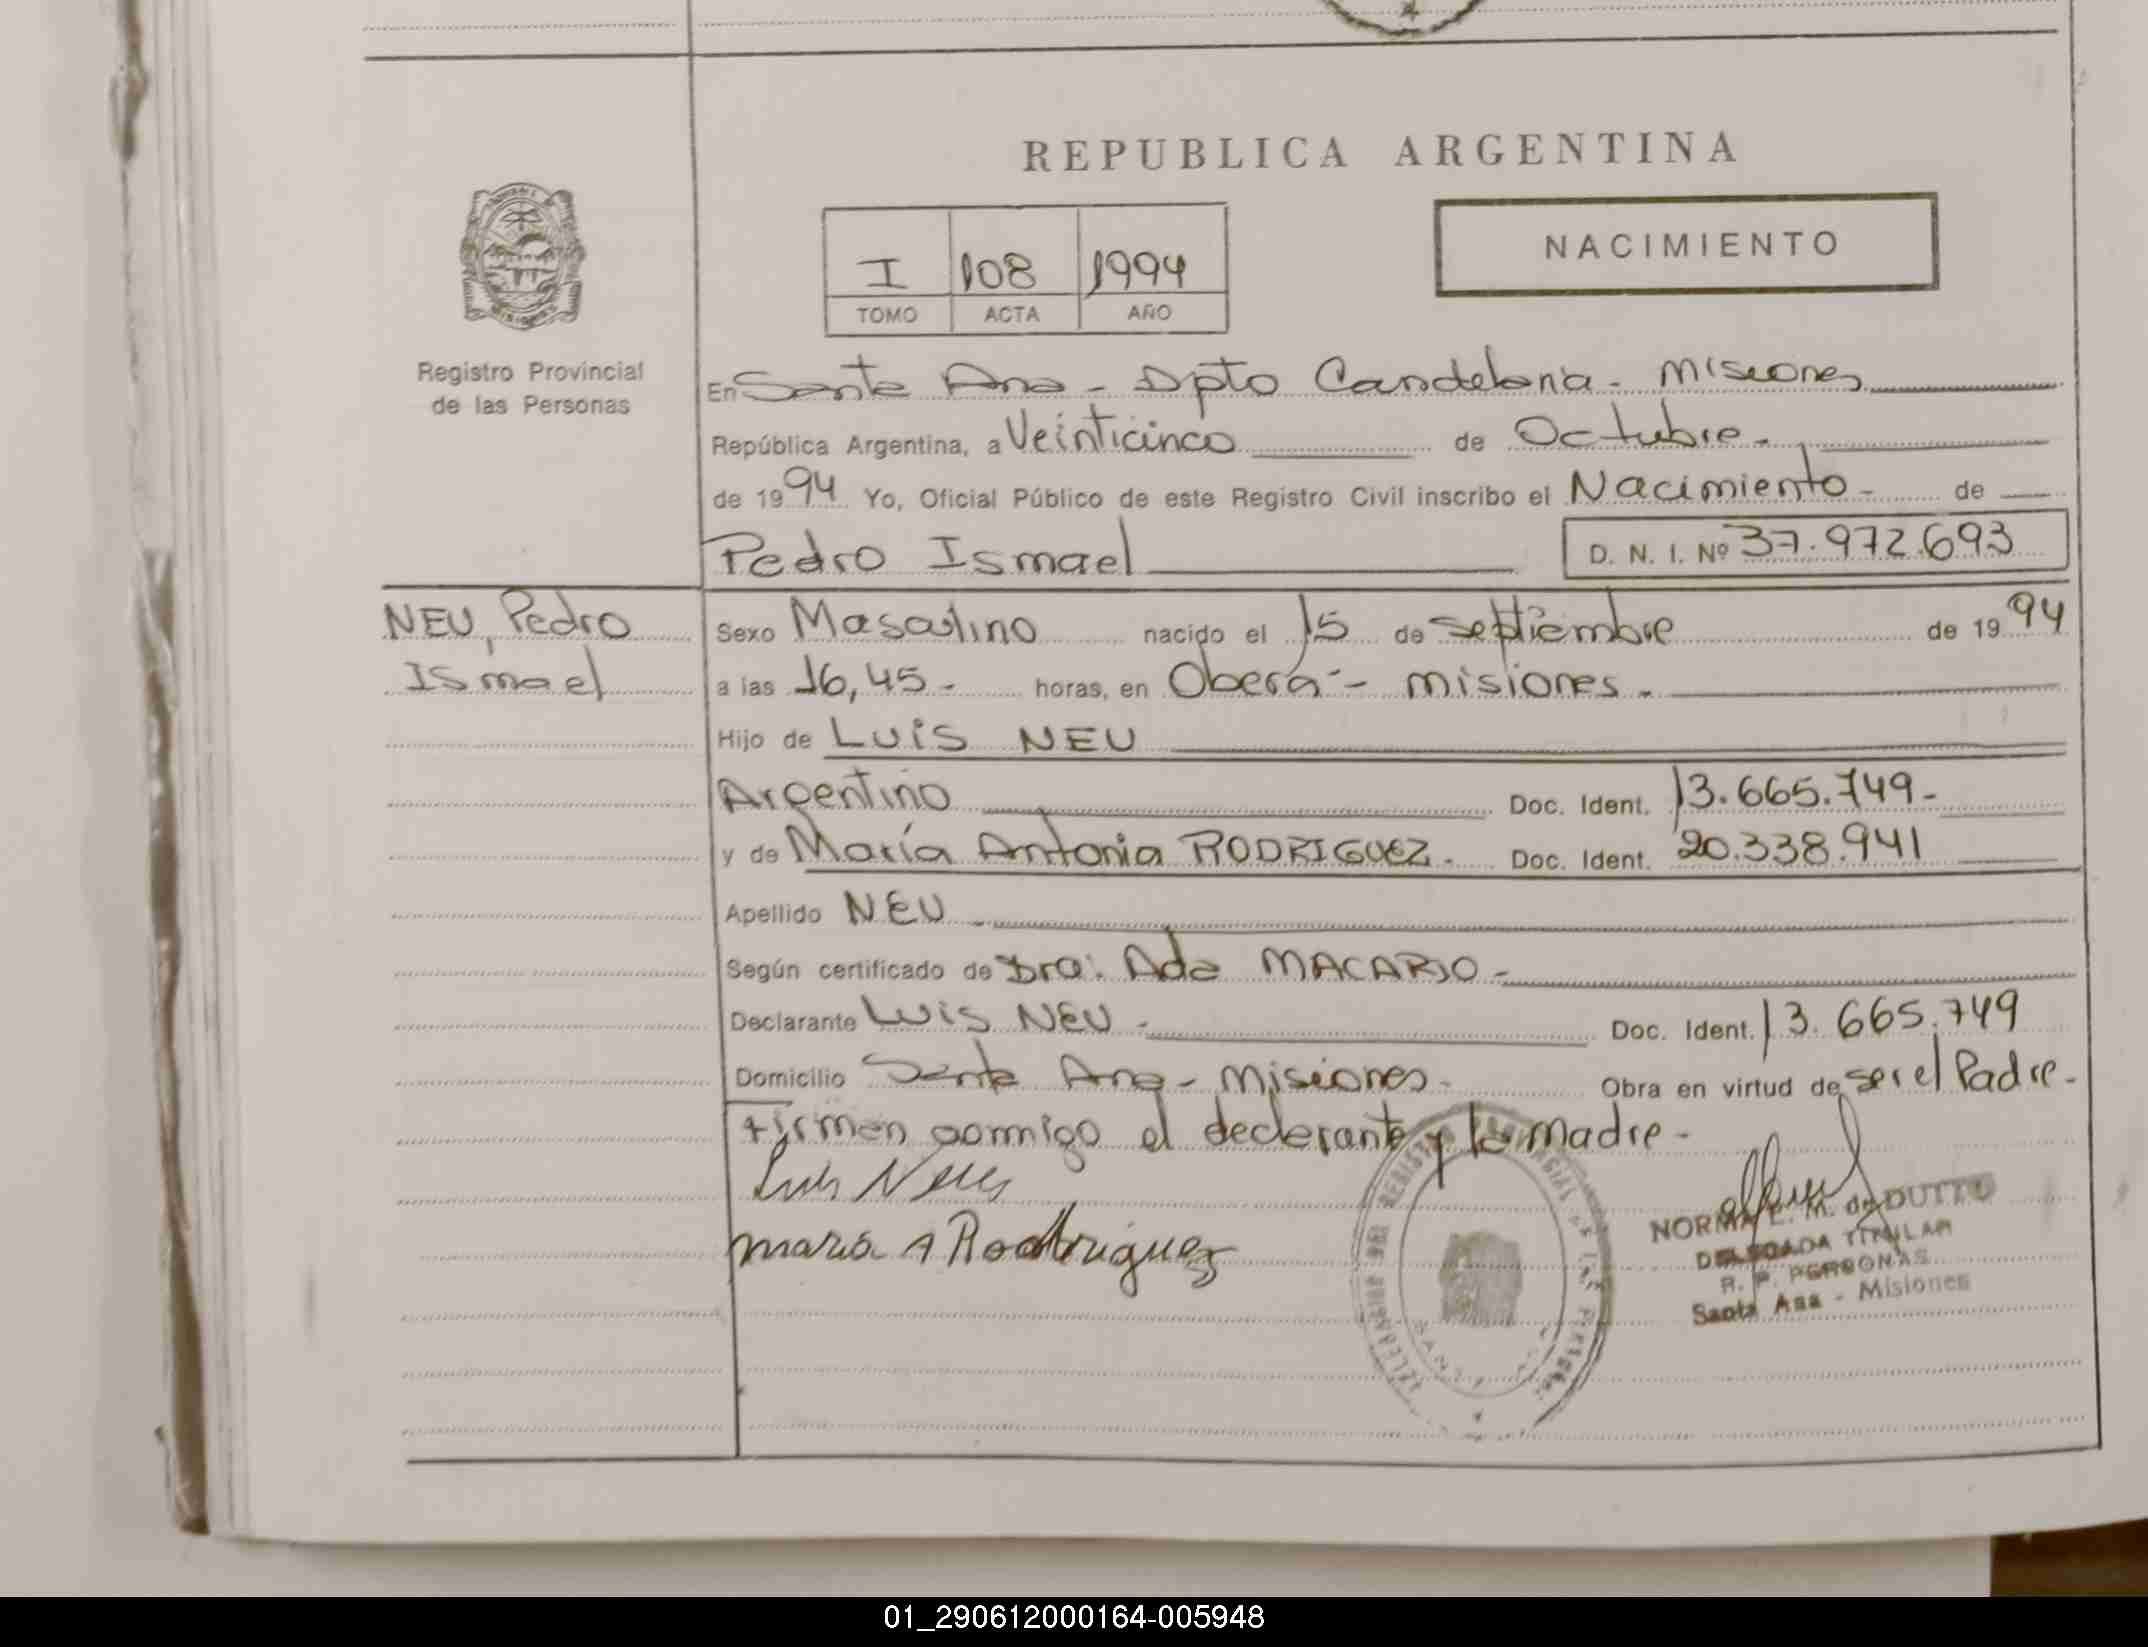 REPUBLICA ARGENTINA
NACIMIENTO
I 108 1994
TOMO ACTA AÑO
Registro Provincial
de las Personas
En Santa Ana - Dpto Candelaria - Misiones
República Argentina, a Veinticinco de Octubre -
de 1994 Yo, Oficial Público de este Registro Civil inscribo el Nacimiento - de
Pedro Ismael D. N. I. Nº 37.972.693
NEU, Pedro
Ismael
Sexo Masculino nacido el 15 de septiembre de 1994
a las 16,45 - horas, en Oberá - misiones.
Hijo de Luis NEU
Argentino Doc. Ident. 13.665.749 -
y de María Antonia RODRIGUEZ - Doc. Ident. 20.338.941
Apellido NEU -
Según certificado de Dra. Ada MACARIO -
Declarante Luis NEU - Doc. Ident. 13.665.749
Domicilio Santa Ana - Misiones - Obra en virtud de ser el Padre -
Firman conmigo el declarante y la madre -
Luis Neu
maria A Rodriguez
NORMA L. M. de DUTTO
DELEGADA TITULAR
R. P. PERSONAS
Santa Ana - Misiones
01_290612000164-005948